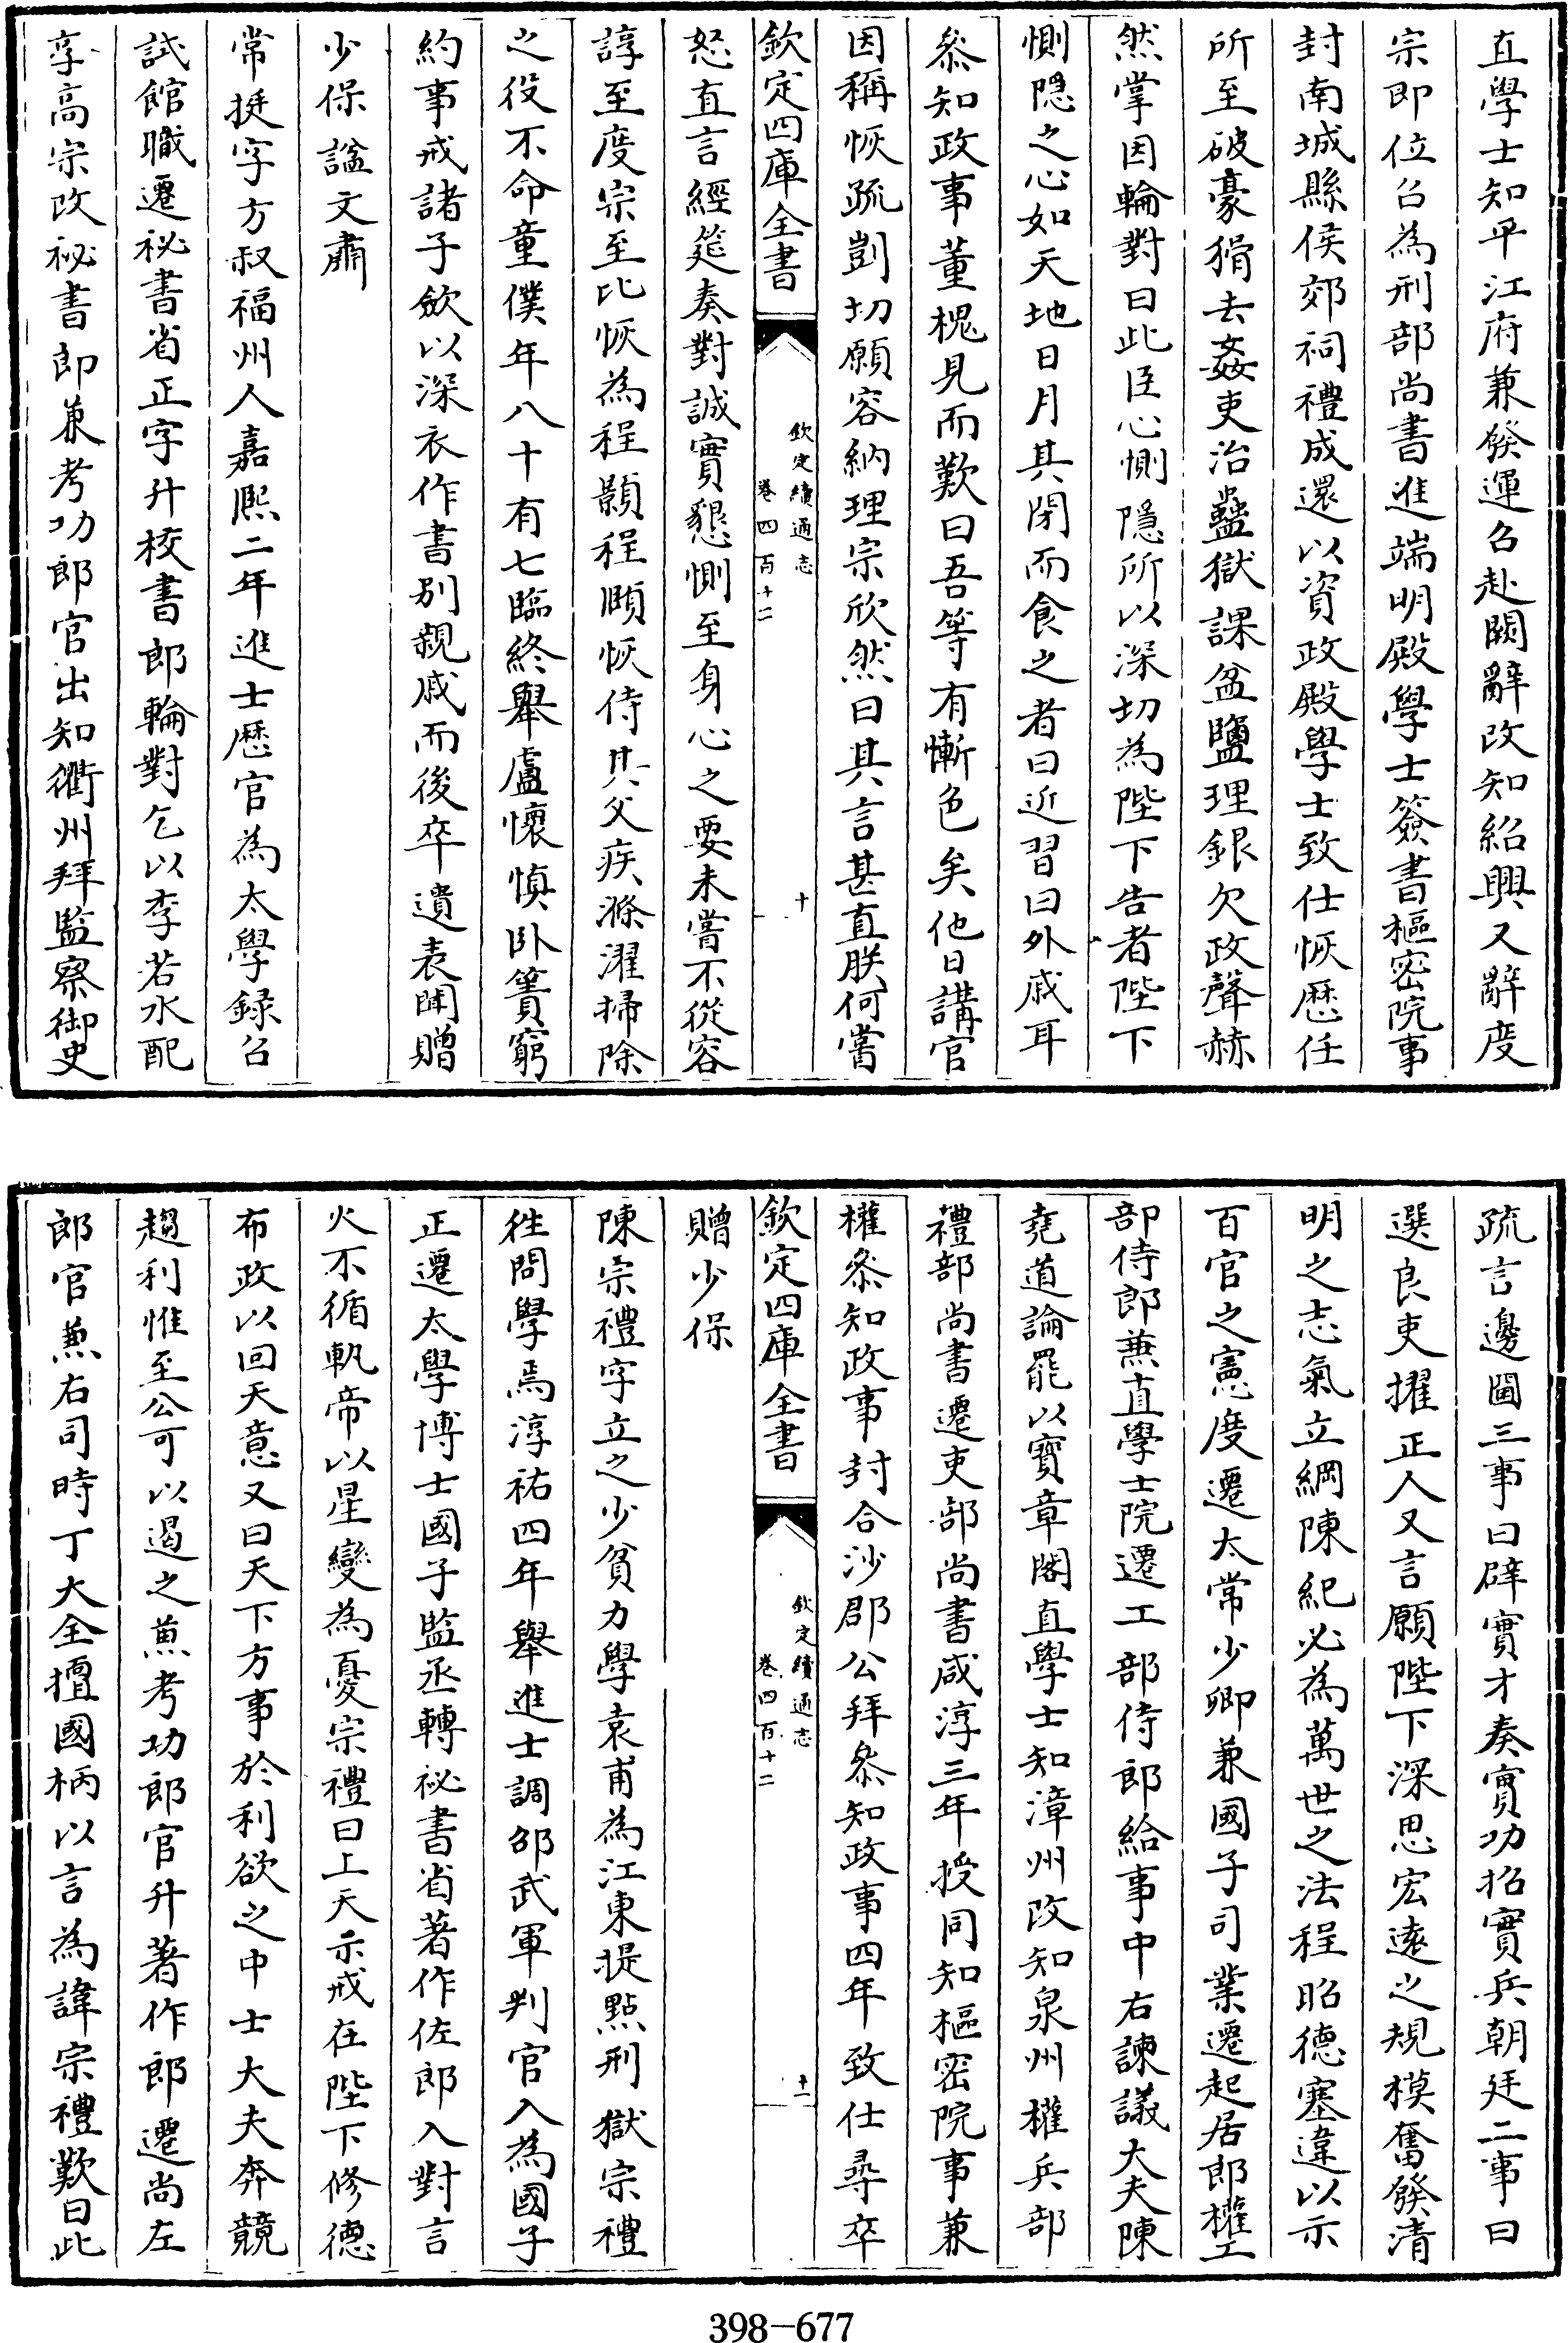 直學士知平江府兼發運召赴闕辭改知紹興又辭度
宗即位召為刑部尚書進端明殿學士簽書樞密院事
封南城縣侯郊祠禮成還以資政殿學士致仕恢歷任
所至破豪猾去姦吏治蠱獄課盆鹽理銀欠政聲赫
然掌因輪對曰此臣心惻隱所以深切為陛下告者陛下
惻隱之心如天地日月其閉而食之者曰近習曰外戚耳
叅知政事董槐見而歎曰吾等有慚色矣他日講官
因稱恢疏剴切願容納理宗欣然曰其言甚直朕何嘗
欽定四庫全書
欽定續通志
卷四百十二
十
怒直言經筵奏對誠實懇惻至身心之要未嘗不從容
諄至度宗至比恢為程顥程頤恢侍其父疾滌濯掃除
之役不命童僕年八十有七臨終舉盧懷慎卧簀窮
約事戒諸子斂以深衣作書別親戚而後卒遺表聞贈
少保諡文肅
常挺字方叔福州人嘉熙二年進士歷官為太學録召
試館職遷祕書省正字升校書郎輪對乞以李若水配
享高宗改祕書郎兼考功郎官出知衢州拜監察御史
疏言邊閫三事曰辟實才奏實功招實兵朝廷二事曰
選良吏擢正人又言願陛下深思宏遠之規模奮發清
明之志氣立綱陳紀必為萬世之法程昭德塞違以示
百官之憲度遷太常少卿兼國子司業遷起居郎權工
部侍郎兼直學士院遷工部侍郎給事中右諫議大夫陳
堯道論罷以寶章閣直學士知漳州改知泉州權兵部
禮部尚書遷吏部尚書咸淳三年授同知樞密院事兼
權叅知政事封合沙郡公拜叅知政事四年致仕尋卒
欽定四庫全書
欽定續通志
卷四百十二
十一
贈少保
陳宗禮字立之少貧力學袁甫為江東提點刑獄宗禮
徃問學焉淳祐四年舉進士調邵武軍判官入為國子
正遷太學博士國子監丞轉祕書省著作佐郎入對言
火不循軌帝以星變為憂宗禮曰上天示戒在陛下修德
布政以回天意又曰天下方事於利欲之中士大夫奔競
趨利惟至公可以遏之兼考功郎官升著作郎遷尚左
郎官兼右司時丁大全擅國柄以言為諱宗禮歎曰此
398-677